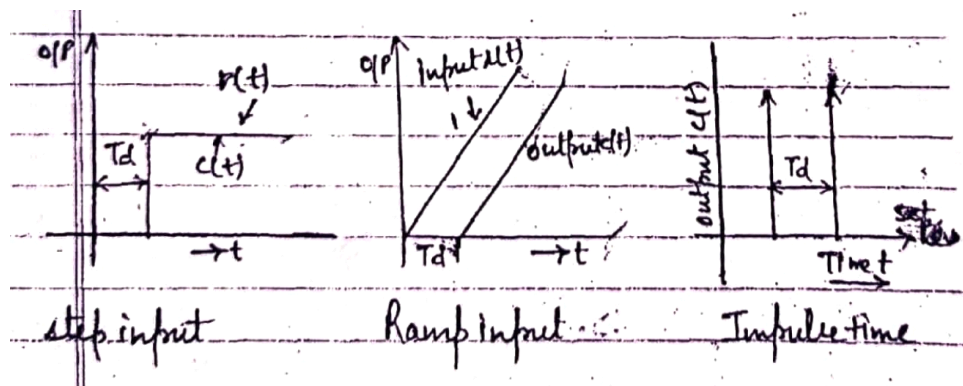 O/P
r(t)
Td
c(t)
→ t
step input
O/P
input r(t)
output c(t)
Td
→ t
Ramp input
output c(t)
Td
Time t
Impulse time